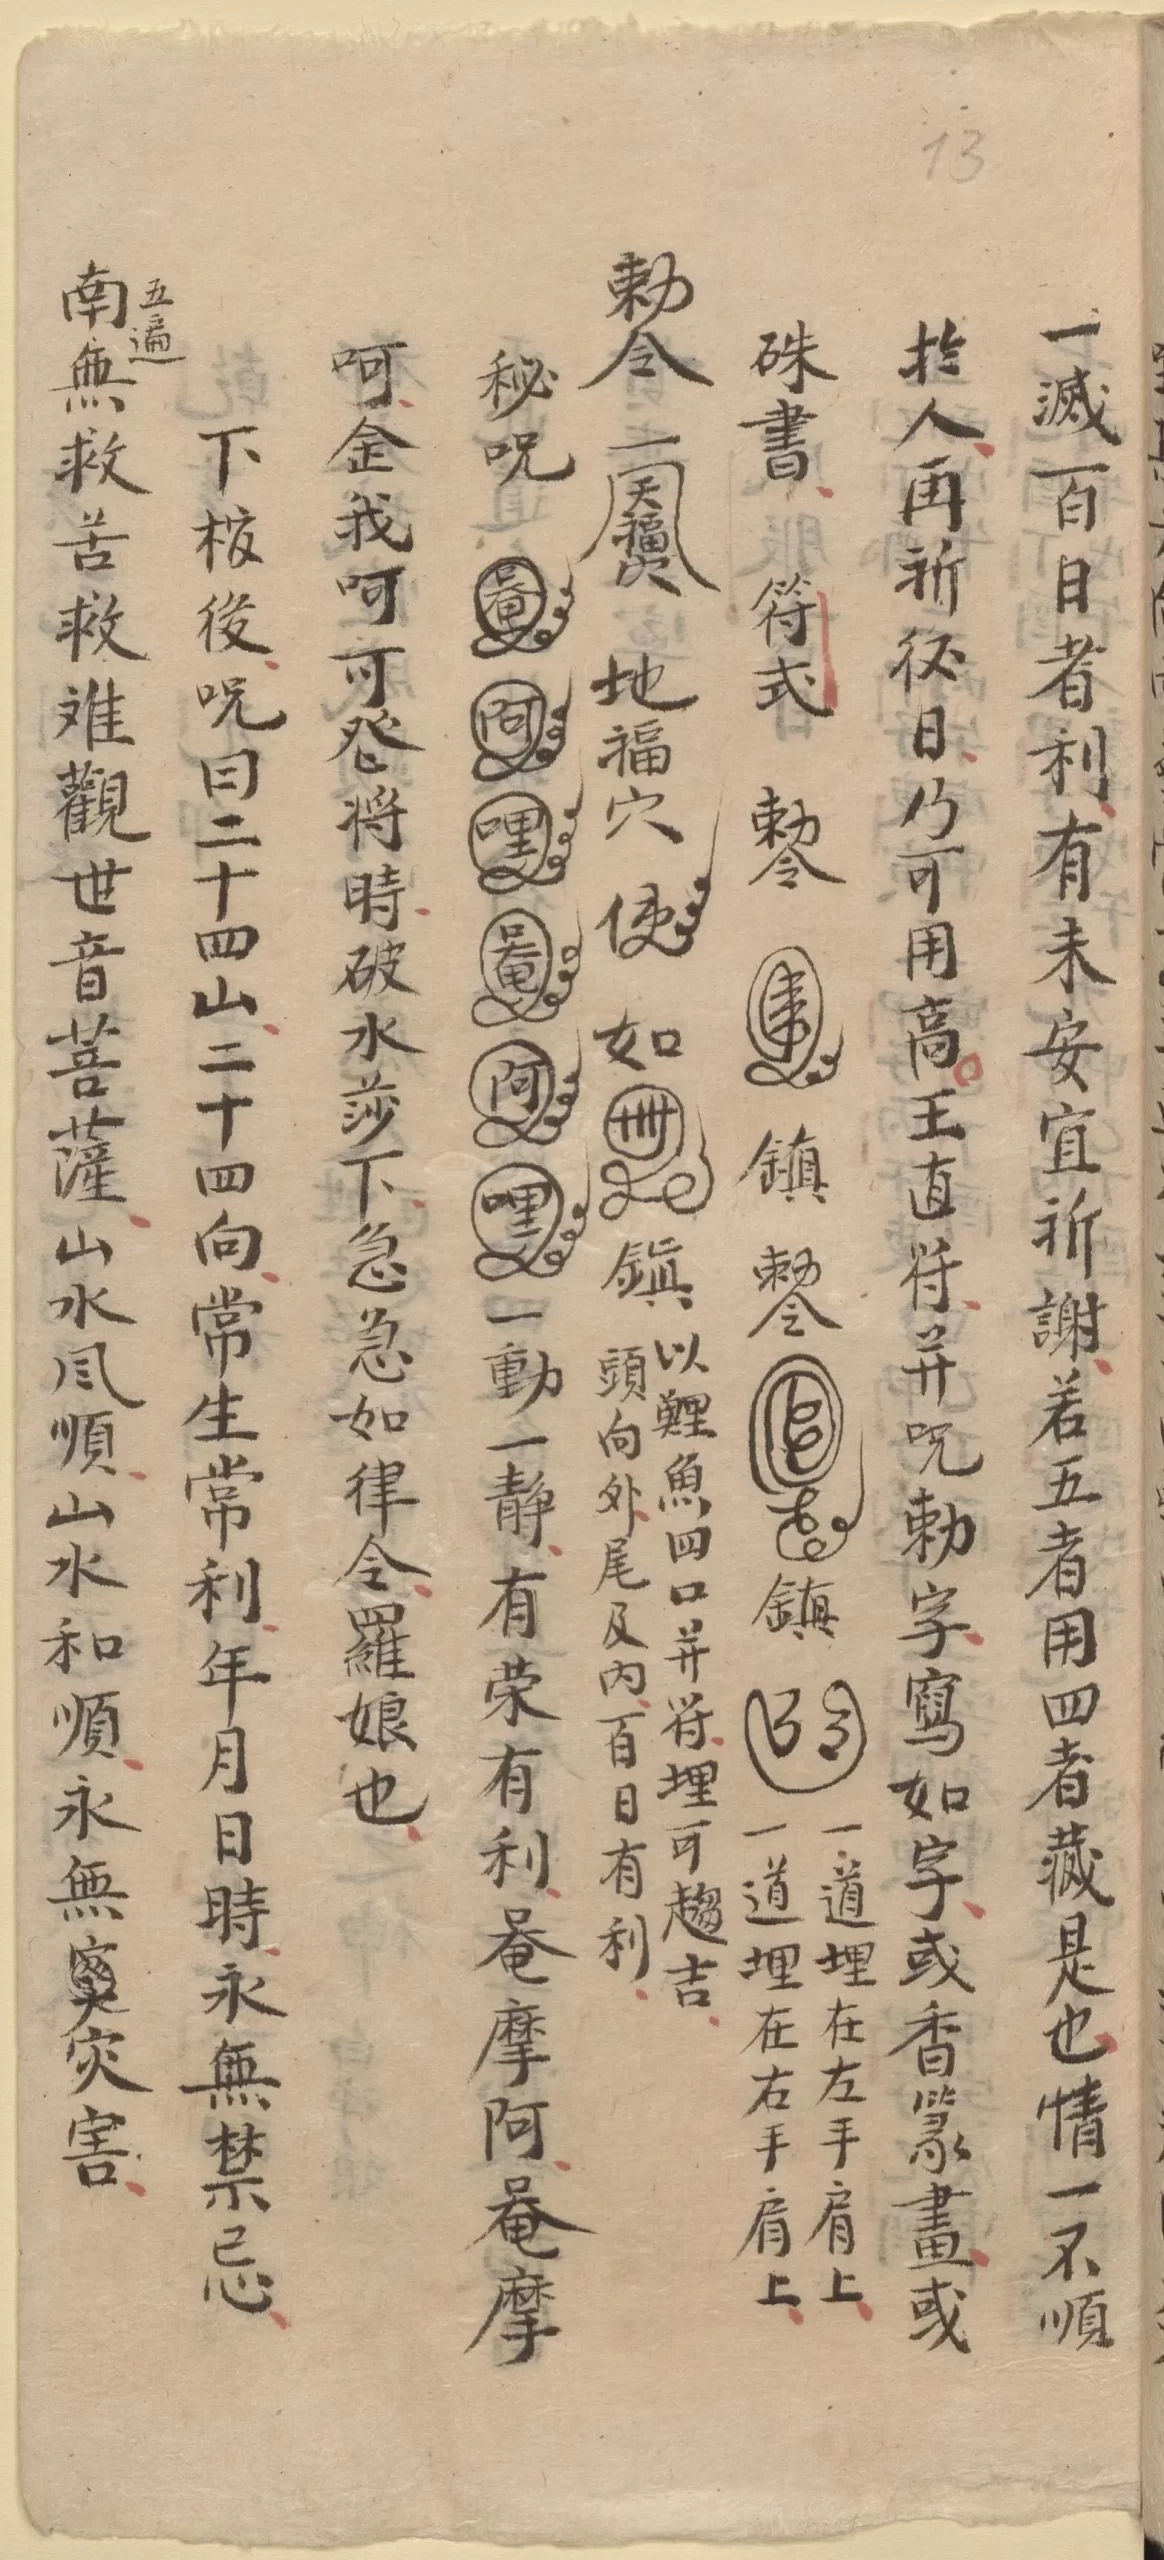 13
一滅百日者利有未安宜祈謝若五者用四者藏是也情一不順
扵人再祈祕日乃可用高王直符并呪勅字寫如字或香篆畫或
硃書 符式 勅令 鎮 勅令 鎮
一道埋在左手肩上
一道埋在右手肩上
勅令 一 天福穴 地福穴 使 如 鎮
以鯉魚四口并符埋可趨吉
頭向外尾及内百日有利
秘呪 唵 啊 哩 唵 啊 哩 一動一静有荣有利唵摩阿唵摩
呵金我呵可癹将時破水莎下急急如律令羅娘也
下棺後呪曰二十四山二十四向常生常利年月日時永無禁忌
五遍
南無救苦救难觀世音菩薩山水风順山水和順永無灾害